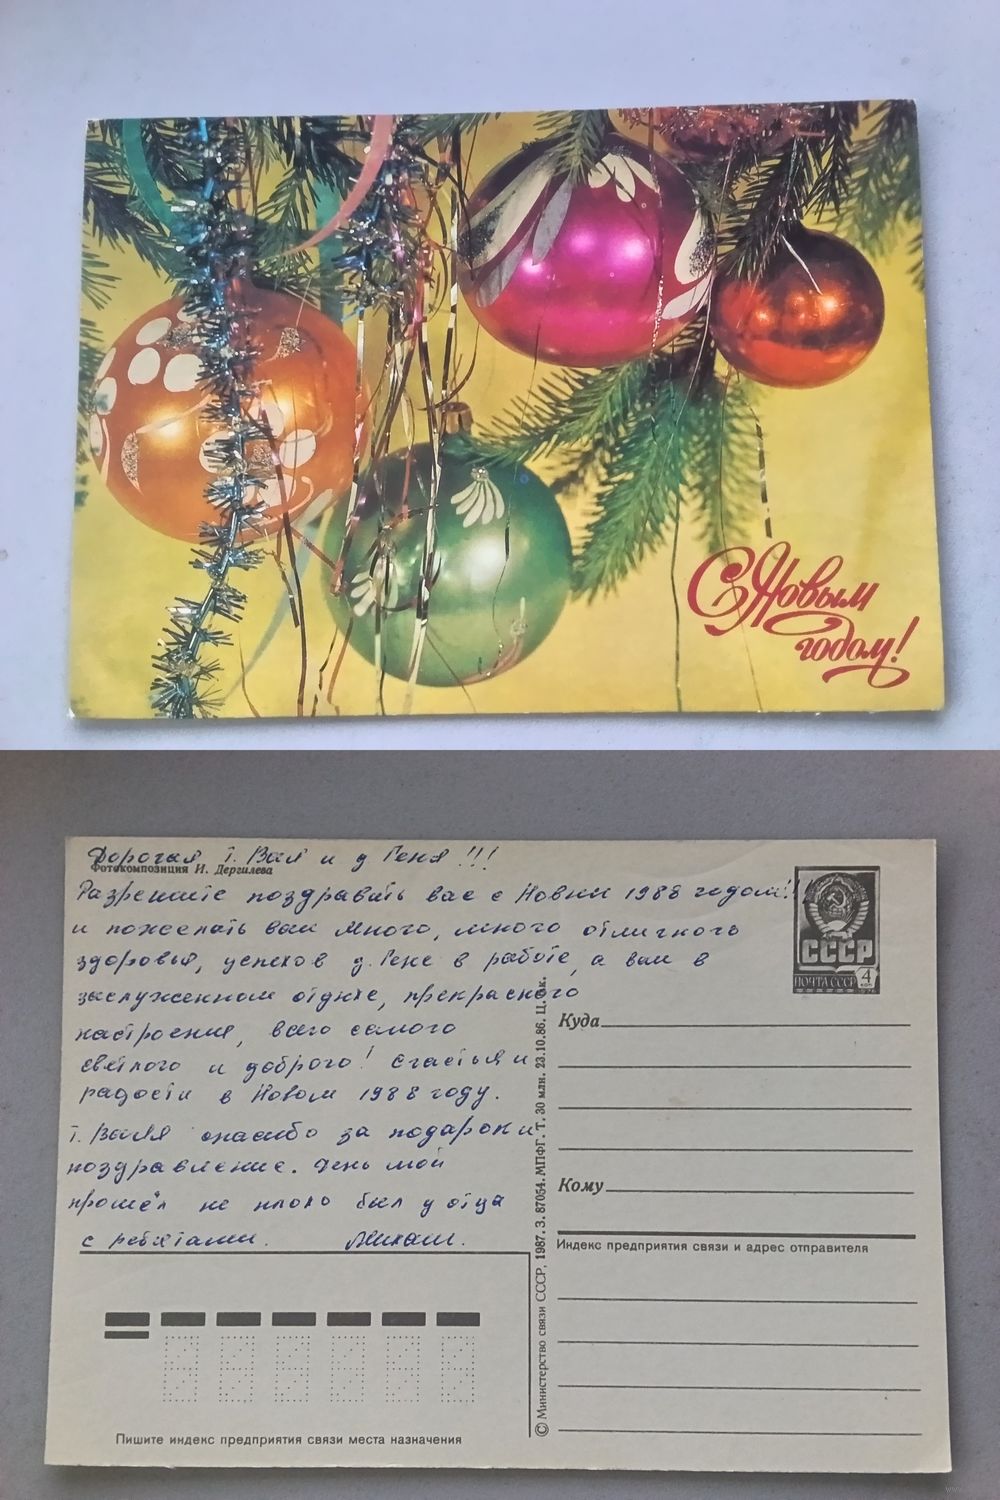 С Новым
годом!
Дорогая т. Валя и д Геня !!!
Фотокомпозиция И. Дергилева
Разрешите поздравить вас с Новым 1988 годом!!!
и пожелать вам много, много отличного
здоровья, успехов д. Гене в работе, а вам в
заслуженном отдыхе, прекрасного
настроения, всего самого
светлого и доброго! Счастья и
радости в Новом 1988 году.
т. Валя спасибо за подарок и
поздравление. День мой
прошёл не плохо был у отца
с ребятами. Михаил.
СССР
ПОЧТА СССР 4 коп
Куда
Кому
Индекс предприятия связи и адрес отправителя
© Министерство связи СССР, 1987. З. 87054. МПФГ. Т. 30 млн. 23.10.86. Ц. 5 к.
Пишите индекс предприятия связи места назначения